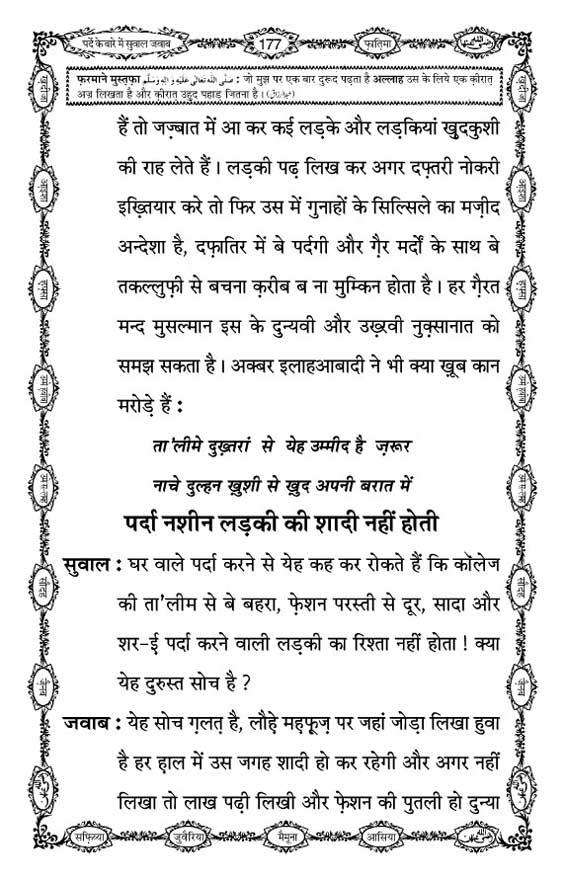 पर्दे के बारे में सुवाल जवाब
177
फ़ातिमा
फ़रमाने मुस्तफ़ा صلى الله تعالى عليه واله وسلم : जो मुझ पर एक बार दुरूद पढ़ता है अल्लाह उस के लिये एक क़ीरात़
अज्र लिखता है और क़ीरात़ उहुद पहाड़ जितना है ।
हैं तो जज़्बात में आ कर कई लड़के और लड़कियां ख़ुदकुशी
की राह लेते हैं । लड़की पढ़ लिख कर अगर दफ़्तरी नोकरी
इख़्तियार करे तो फिर उस में गुनाहों के सिल्सिले का मज़ीद
अन्देशा है, दफ़ातिर में बे पर्दगी और ग़ैर मर्दों के साथ बे
तकल्लुफ़ी से बचना क़रीब ब ना मुम्किन होता है । हर ग़ैरत
मन्द मुसल्मान इस के दुन्यवी और उख़्रवी नुक़्सानात को
समझ सकता है । अक्बर इलाहआबादी ने भी क्या ख़ूब कान
मरोड़े हैं :
ता'लीमे दुख़्तरां से येह उम्मीद है ज़रूर
नाचे दुल्हन ख़ुशी से ख़ुद अपनी बरात में
पर्दा नशीन लड़की की शादी नहीं होती
सुवाल : घर वाले पर्दा करने से येह कह कर रोकते हैं कि कॉलेज
की ता'लीम से बे बहरा, फ़ेशन परस्ती से दूर, सादा और
शर-ई पर्दा करने वाली लड़की का रिश्ता नहीं होता ! क्या
येह दुरुस्त सोच है ?
जवाब : येह सोच ग़लत़ है, लौहे़ मह़फ़ूज़ पर जहां जोड़ा लिखा हुवा
है हर ह़ाल में उस जगह शादी हो कर रहेगी और अगर नहीं
लिखा तो लाख पढ़ी लिखी और फ़ेशन की पुतली हो दुन्या
सफ़िय्या
जुवैरिया
मैमूना
आसिया